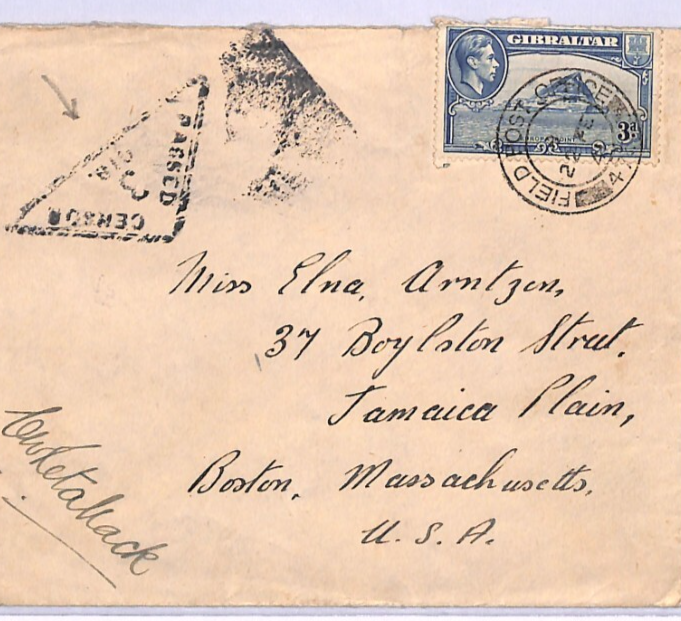 GIBRALTAR
3d
FIELD POST OFFICE
PASSED
CENSOR
Miss Elna, Arntzen,
37 Boylston Street,
Jamaica Plain,
Boston, Massachusetts,
U. S. A.